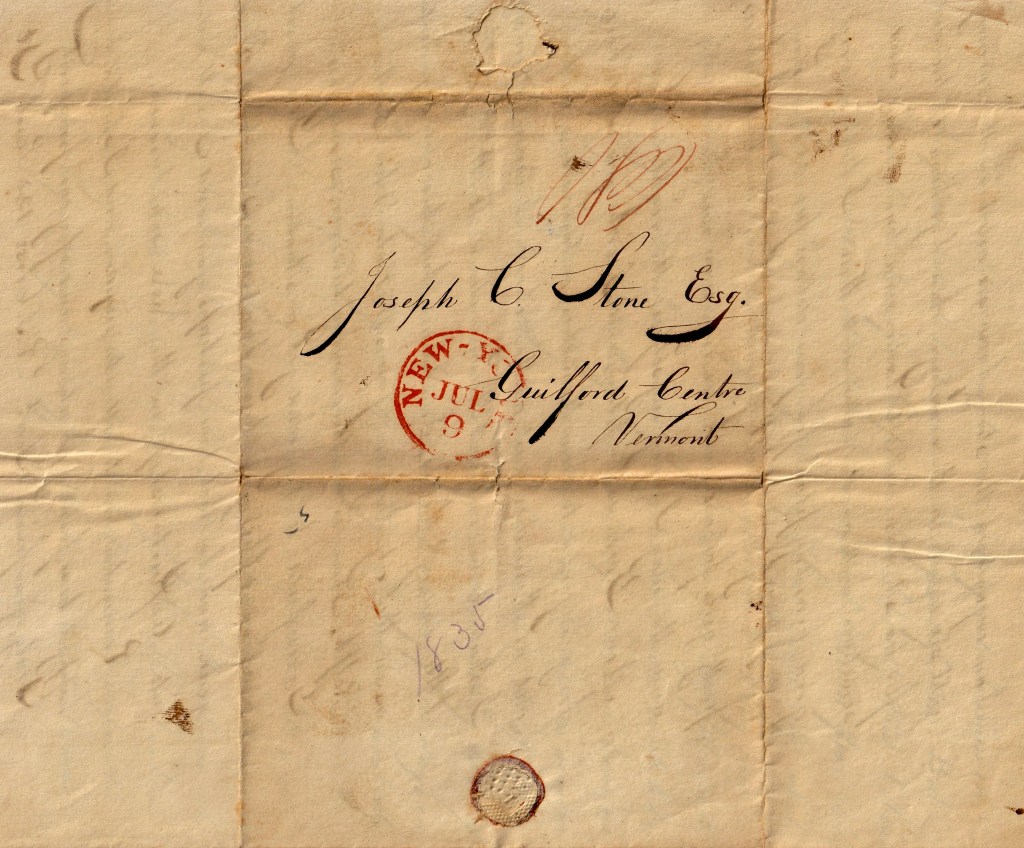 Joseph C. Stone Esq.
NEW-Y
JUL
9
Guilford Centre
Vermont
1835